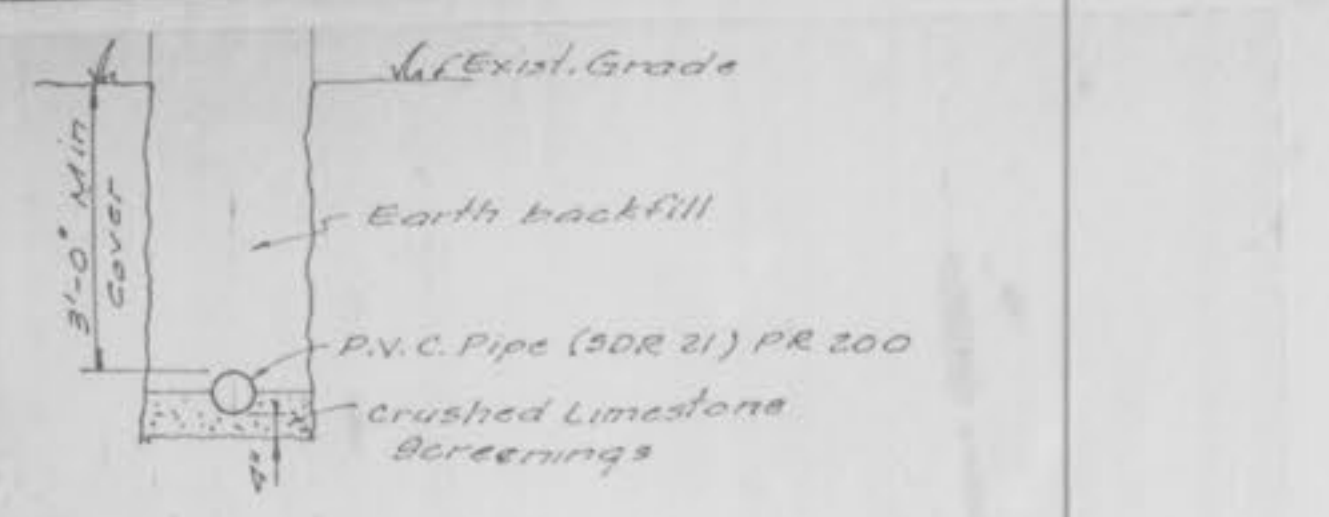 Exist. Grade
3'-0" Min
Cover
Earth backfill
P.V.C. Pipe (SDR 21) PR 200
Crushed Limestone
Screenings
4"